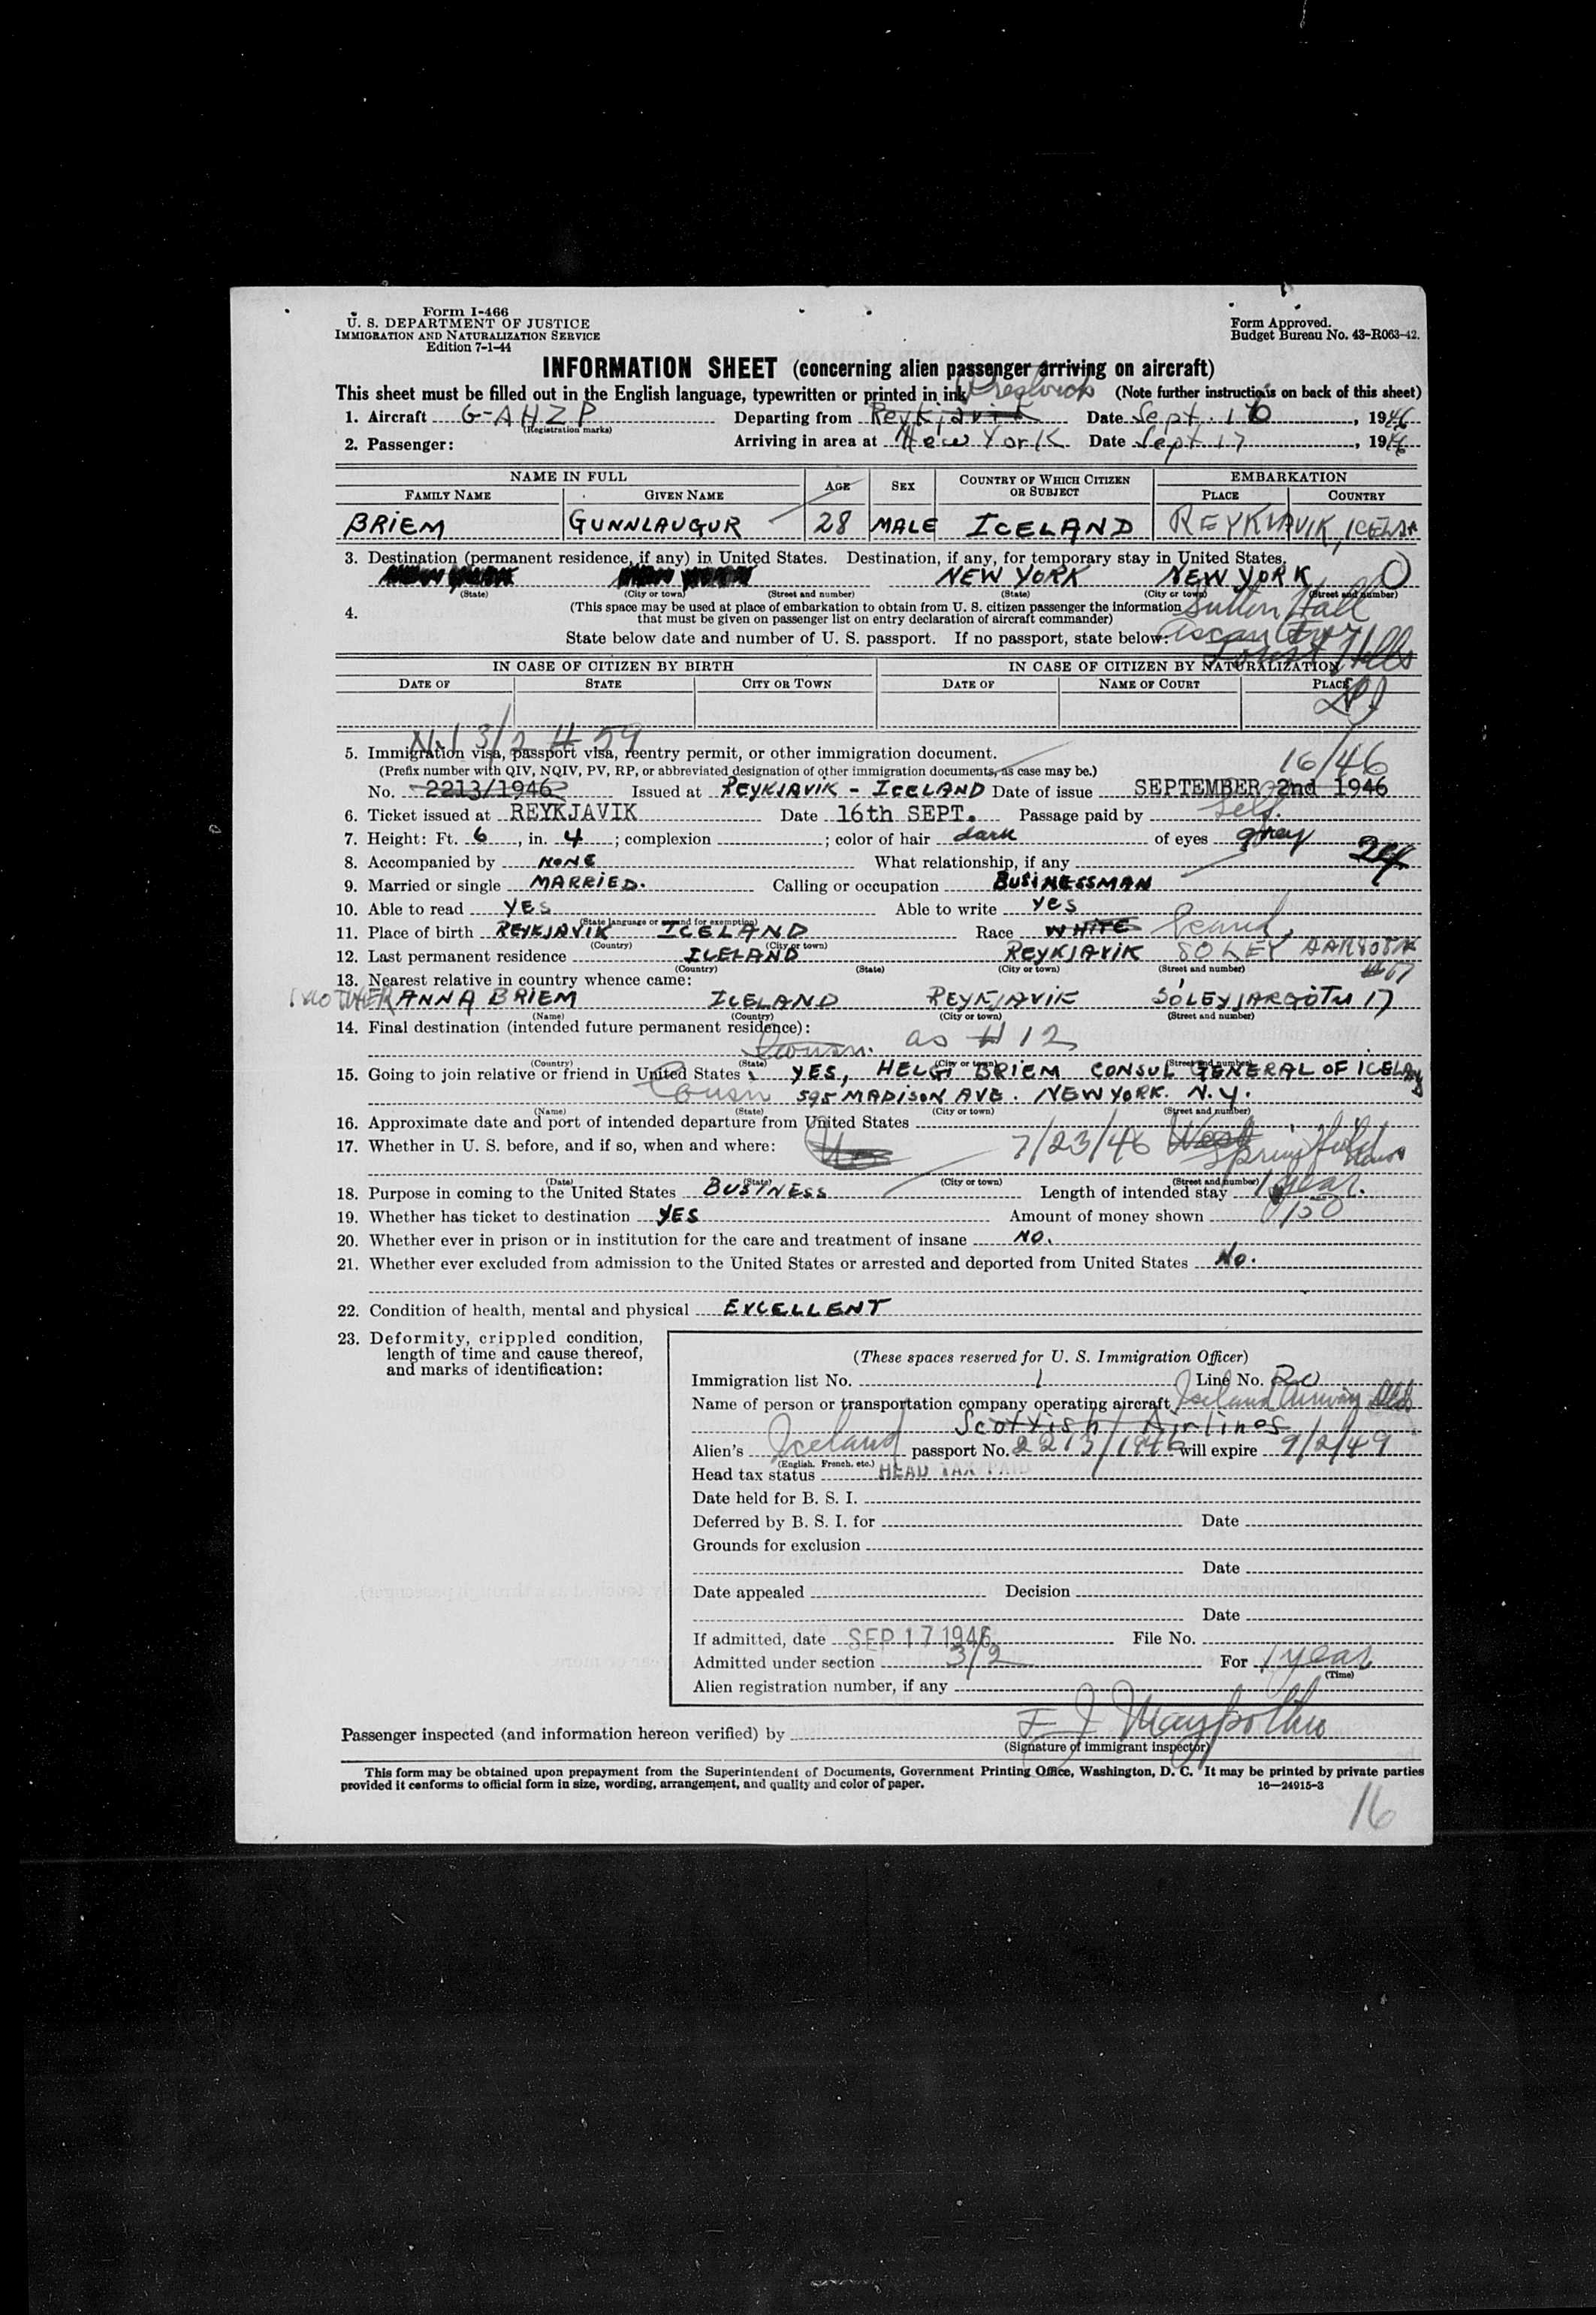 Form I-466
U. S. DEPARTMENT OF JUSTICE
IMMIGRATION AND NATURALIZATION SERVICE
Edition 7-1-44
Form Approved.
Budget Bureau No. 43-R063-42.
INFORMATION SHEET (concerning alien passenger arriving on aircraft)
This sheet must be filled out in the English language, typewritten or printed in ink (Note further instructions on back of this sheet)
1. Aircraft G-AHZP Departing from Reykjavik Date Sept. 16, 1946
(Registration marks)
2. Passenger: Arriving in area at New York Date Sept 17, 1946
NAME IN FULL AGE SEX COUNTRY OF WHICH CITIZEN OR SUBJECT EMBARKATION
FAMILY NAME GIVEN NAME PLACE COUNTRY
BRIEM GUNNLAUGUR 28 MALE ICELAND REYKJAVIK,
3. Destination (permanent residence, if any) in United States. Destination, if any, for temporary stay in United States.
NEW YORK NEW YORK
(State) (City or town) (Street and number) (State) (City or town) (Street and number)
Sutton Hall
4. (This space may be used at place of embarkation to obtain from U. S. citizen passenger the information
that must be given on passenger list on entry declaration of aircraft commander)
State below date and number of U. S. passport. If no passport, state below:
Forest Hills
IN CASE OF CITIZEN BY BIRTH IN CASE OF CITIZEN BY NATURALIZATION
DATE OF STATE CITY OR TOWN DATE OF NAME OF COURT PLACE
3/2 # 59
5. Immigration visa, passport visa, reentry permit, or other immigration document.
16/46
(Prefix number with QIV, NQIV, PV, RP, or abbreviated designation of other immigration documents, as case may be.)
No. 2213/1946 Issued at REYKJAVIK - ICELAND Date of issue SEPTEMBER 2nd 1946
6. Ticket issued at REYKJAVIK Date 16th SEPT. Passage paid by Self.
7. Height: Ft. 6, in. 4; complexion ; color of hair dark of eyes grey
24
8. Accompanied by NONE What relationship, if any
9. Married or single MARRIED. Calling or occupation BUSINESSMAN
10. Able to read YES Able to write YES
(State language or ground for exemption)
11. Place of birth REYKJAVIK ICELAND Race WHITE Scand.
(Country) (City or town)
12. Last permanent residence ICELAND REYKJAVIK
(Country) (State) (City or town) (Street and number)
#17
13. Nearest relative in country whence came:
MOTHER ANNA BRIEM ICELAND REYKJAVIK SÓLEYJARGÖTU 17
(Name) (Country) (City or town) (Street and number)
14. Final destination (intended future permanent residence):
as #12
(Country) (State) (City or town) (Street and number)
15. Going to join relative or friend in United States: YES, HELGI BRIEM CONSUL GENERAL OF ICELAND
Cousin 595 MADISON AVE. NEW YORK. N.Y.
(Name) (State) (City or town) (Street and number)
16. Approximate date and port of intended departure from United States
17. Whether in U. S. before, and if so, when and where: 7/23/46 West Springfield
(Date) (State) (City or town) (Street and number)
18. Purpose in coming to the United States BUSINESS Length of intended stay 1 year.
19. Whether has ticket to destination YES Amount of money shown 150
20. Whether ever in prison or in institution for the care and treatment of insane NO.
21. Whether ever excluded from admission to the United States or arrested and deported from United States No.
22. Condition of health, mental and physical EXCELLENT
23. Deformity, crippled condition,
length of time and cause thereof,
and marks of identification:
(These spaces reserved for U. S. Immigration Officer)
Immigration list No. 1 Line No. 20
Name of person or transportation company operating aircraft Iceland Airways
Scottish Airlines
Alien's Iceland passport No. 2213/1946 will expire 9/2/49
(English, French, etc.)
Head tax status HEAD TAX PAID
Date held for B. S. I.
Deferred by B. S. I. for Date
Grounds for exclusion
Date
Date appealed Decision
Date
If admitted, date SEP 17 1946 File No.
Admitted under section 3/2 For 1 year
(Time)
Alien registration number, if any
Passenger inspected (and information hereon verified) by
(Signature of immigrant inspector)
This form may be obtained upon prepayment from the Superintendent of Documents, Government Printing Office, Washington, D. C. It may be printed by private parties
provided it conforms to official form in size, wording, arrangement, and quality and color of paper. 16—24915-3
16